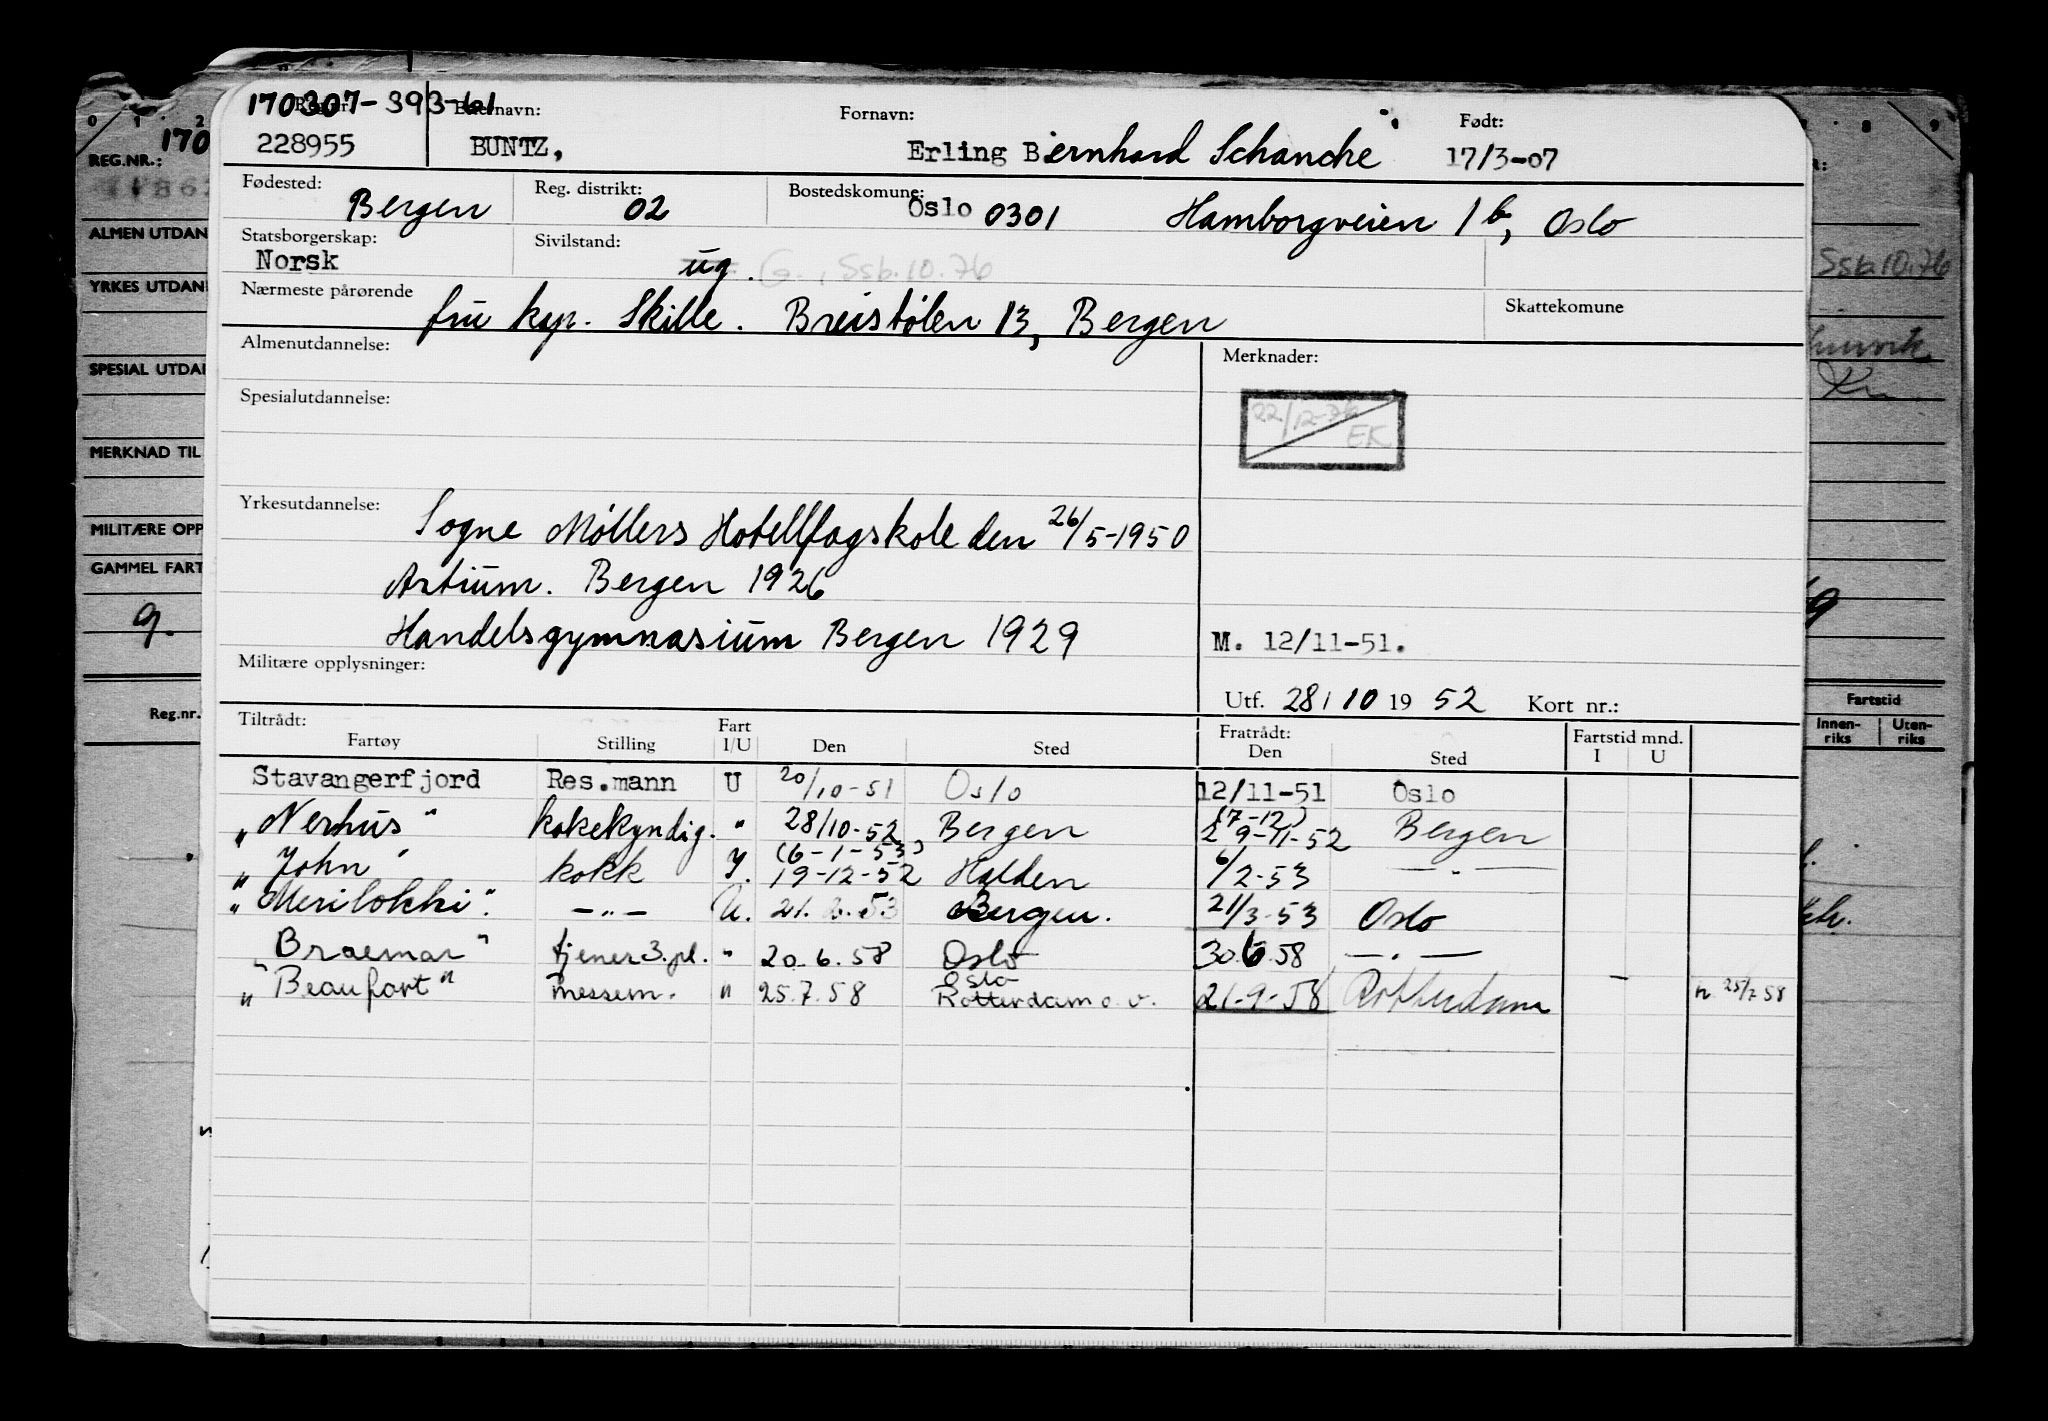 170307-393-61
Reg.nr. Etternavn: Fornavn: Født:
228955 BUNTZ, Erling Bernhard Schanche 17/3-07
Fødested: Reg. distrikt: Bostedskomune:
Bergen 02 Oslo 0301 Hamborgveien 1 b, Oslo
Statsborgerskap: Sivilstand:
Norsk ug. G., Ssb.10.76
Nærmeste pårørende Skattekomune
fru kap. Skille. Breistølen 13, Bergen
Almenutdannelse: Merknader:
Spesialutdannelse: 22/12-76 EK
Yrkesutdannelse:
Sogne Møllers Hotellfagskole den 26/5-1950
Artium. Bergen 1926
Handelsgymnasium Bergen 1929
M. 12/11-51.
Militære opplysninger:
Utf. 28/10 19 52 Kort nr.:
Tiltrådt: Fratrådt:
Fartøy Stilling Fart I/U Den Sted Den Sted Fartstid mnd. I U
Stavangerfjord Res.mann U 20/10-51 Oslo 12/11-51 Oslo
"Nerhus" kokekyndig. " 28/10-52 Bergen (7-12) 29-11-52 Bergen
"John" kokk I. (6-1-53) 19-12-52 Halden 6/2-53 — " —
"Merilokki". — " — U. 21. 2. 53 Bergen. 21/3-53 Oslo
"Braemar" tjener 3.pl. " 20.6.58 Oslo 30.6.58 — " —
"Beaufort" messem. " 25.7.58 Oslo Rotterdam o.v. 21-9-58 Rotterdam — n. 25/7 58
0 1 2
170
REG.NR.:
ALMEN UTDAN
YRKES UTDAN
SPESIAL UTDA
MERKNAD TIL
MILITÆRE OPP
GAMMEL FART
9.
Reg.nr.
8 9
Ssb.10.76
Fartstid
Innen-riks Uten-riks